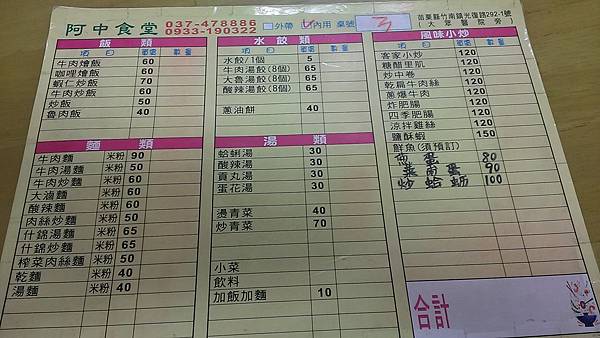 阿中食堂 037-478886 0933-190322 □外帶 □內用 桌號 3 苗栗縣竹南鎮光復路292-1號
(大眾醫院旁)
飯類
項目 價格 數量
牛肉燴飯 60
咖哩燴飯 60
蝦仁炒飯 70
牛肉炒飯 60
炒飯 50
魯肉飯 40
麵類
項目 價格 數量
牛肉麵 米粉 90
牛肉湯麵 米粉 50
牛肉炒麵 米粉 60
大滷麵 米粉 60
酸辣麵 米粉 60
肉絲炒麵 米粉 50
什錦湯麵 米粉 65
什錦炒麵 米粉 65
榨菜肉絲麵 米粉 50
乾麵 米粉 40
湯麵 米粉 40
水餃類
項目 價格 數量
水餃/1個 5
牛肉湯餃(8個) 65
大魯湯餃(8個) 65
酸辣湯餃(8個) 65
蔥油餅 40
湯類
蛤蜊湯 30
酸辣湯 30
貢丸湯 30
蛋花湯 30
燙青菜 40
炒青菜 70
小菜
飲料
加飯加麵 10
風味小炒
項目 價格 數量
客家小炒 120
糖醋里肌 120
炒中卷 120
乾扁牛肉絲 120
蔥爆牛肉 120
炸肥腸 120
四季肥腸 120
涼拌雞絲 120
鹽酥蝦 150
鮮魚(須預訂)
蛋 80
菜甫蛋 90
炒蛤蠣 100
合計